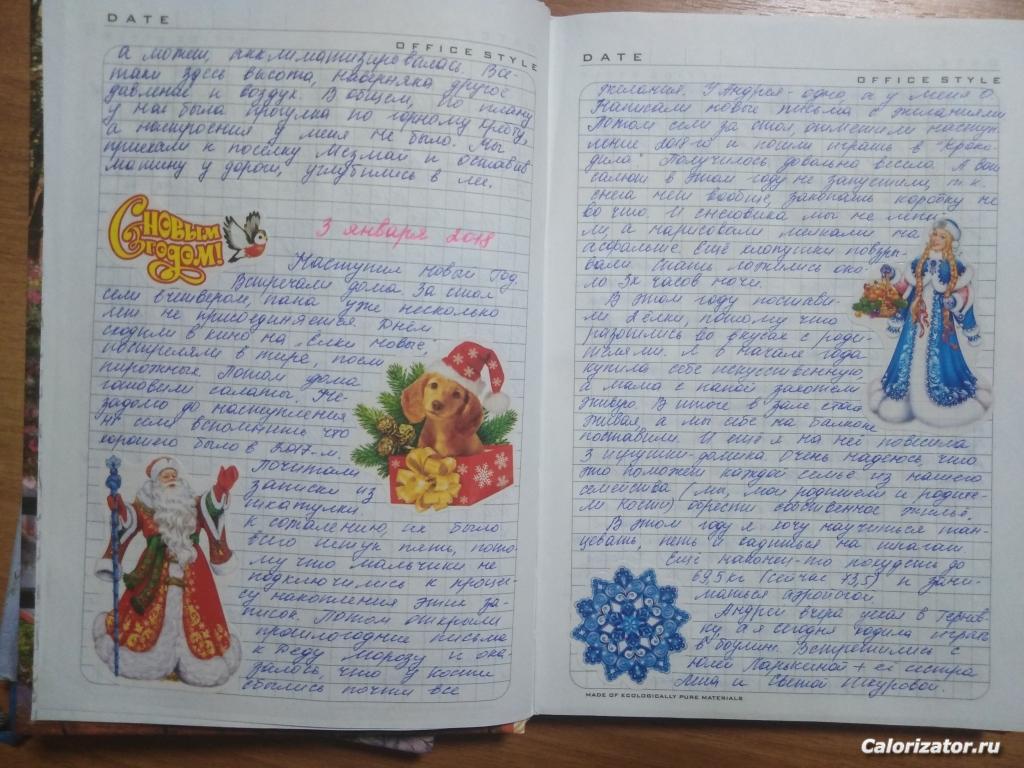 DATE
OFFICE STYLE
а может, акклиматизировалась. Все-
таки здесь высота, наверняка другое
давление и воздух. В общем, по плану
у нас была прогулка по горному хребту,
а настроения у меня не было. Мы
приехали к посёлку Мезмай и оставив
машину у дороги, углубились в лес.
С НОВЫМ ГОДОМ!
3 января 2018
Наступил Новый Год.
Встречали дома. За стол
сели вчетвером, папа уже несколько
лет не присоединяется. Днём
сходили в кино на „Ёлки новые",
постреляли в тире, поели
пирожных. Потом дома
готовили салаты. Не-
задолго до наступления
НГ сели вспомнить что
хорошего было в 2017-м.
Почитали
записки из
шкатулки
к сожалению, их было
всего штук пять, пото-
му что мальчики не
подключились к процес-
су накопления этих за-
писок. Потом открыли
прошлогодние письма
к Деду Морозу и ока-
залось, что у Кости
сбылись почти все
DATE
OFFICE STYLE
желания. У Андрея - одно, а у меня 0.
Написали новые письма с желаниями
Потом сели за стол, отметили наступ-
ление 2018-го и пошли играть в "Кроко-
дила". Получилось довольна весело. А вот
салют в этом году не запустили, т.к.
снега нет вообще, закопать коробку не
во что. И снеговика мы не лепи-
ли, а нарисовали мелками на
асфальте. Ещё хлопушки повзры-
вали. Спать ложились око-
ло 3х часов ночи.
В этом году постави-
ли 2 ёлки, потому что
разошлись во вкусах с роди-
телями. Я в начале года
купила себе искусственную,
а мама с папой захотели
живую. В итоге в зале стоит
живая, а мы себе на балконе
поставили. И ещё я на неё повесила
3 игрушки-домика. Очень надеюсь, что
это поможет каждой семье из нашего
семейства (мы, мои родители и родите-
ли Кости) обрести собственное жильё.
В этом году я хочу научиться тан-
цевать, петь и садиться на шпагат
Ещё наконец-то похудеть до
69,5 кг (сейчас 73,5) и зани-
маться аэройогой.
Андрей вчера уехал в
а я сегодня ходила играть
в боулинг. Встретились с
Юлей Ларькиной + её сестра
Лиза и Светой Шкуровой.
MADE OF ECOLOGICALLY PURE MATERIALS
Calorizator.ru